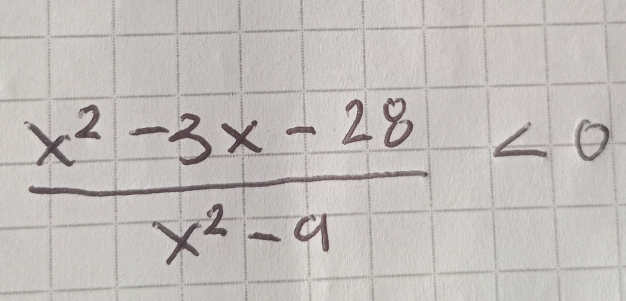 x² - 3x - 28
x² - 9
< 0